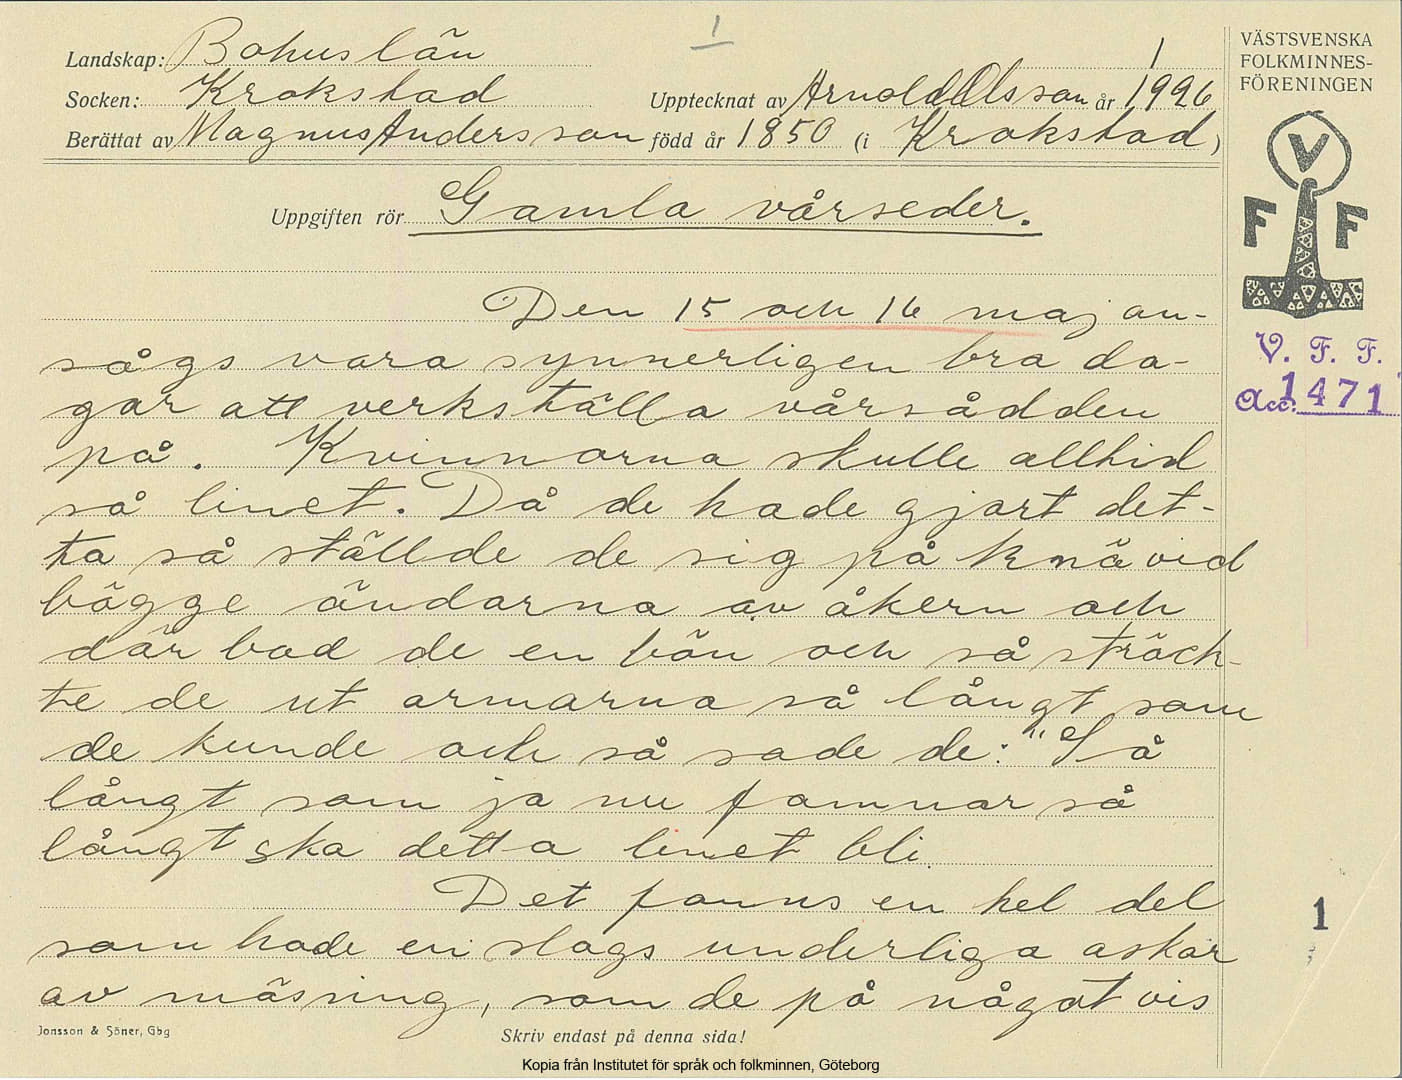 1
Landskap: Bohuslän
Socken: Krokstad
Upptecknat av Arnold Olsson år 1926
Berättat av Magnus Andersson född år 1850 (i Krokstad)
Uppgiften rör Gamla vårseder.
Den 15 och 16 maj an-
sågs vara synnerligen bra da-
gar att verkställa vårsådden
på. Kvinnorna skulle alltid
så linet. Då de hade gjort det-
ta så ställde de sig på knä vid
bägge ändarna av åkern och
där bad de en bön och så sträck-
te de ut armarna så långt som
de kunde och så sade de: "Så
långt som ja nu famnar så
långt ska detta linet bli.
Det fanns en hel del
som hade en slags underliga askar
av mäsning, som de på något vis
Jonsson & Söner, Gbg
Skriv endast på denna sida!
VÄSTSVENSKA
FOLKMINNES-
FÖRENINGEN
V
F F
V. F. F.
Acc: 1471
1
Kopia från Institutet för språk och folkminnen, Göteborg